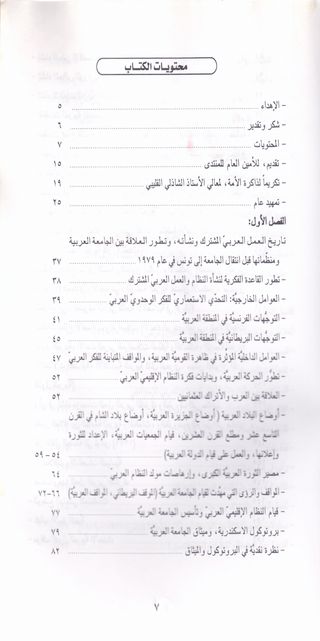 محتويات الكتاب
- الإهداء ............ ٥
- شكر وتقدير ............ ٦
- المحتويات ............ ٧
- تقديم، للأمين العام للمنتدى ............ ١٥
- تكريماً لذاكرة الأمة، لمعالي الأستاذ الشاذلي القليبي ............ ١٩
- تمهيد عام ............ ٢٥
الفصل الأول:
تاريخ العمل العربيّ المشترك ونشأته، وتطور العلاقة بين الجامعة العربية
ومنظّماتها قبل انتقال الجامعة إلى تونس في عام ١٩٧٩ ............ ٣٧
- تطور القاعدة الفكرية لنشأة النظام والعمل العربيّ المشترك ............ ٣٨
- العوامل الخارجيّة: التحدّي الاستعماريّ للفكر الوحدويّ العربيّ ............ ٣٩
- التوجّهات الفرنسيّة في المنطقة العربيّة ............ ٤١
- التوجّهات البريطانيّة في المنطقة العربيّة ............ ٤٥
- العوامل الداخليّة المؤثّرة في ظاهرة القوميّة العربية، والمواقف المتباينة للفكر العربيّ ٤٧
- تطوّر الحركة العربيّة، وبدايات فكرة النظام الإقليميّ العربي ............ ٥٢
- العلاقة بين العرب والأتراك العثمانيين ............ ٥٢
- أوضاع البلاد العربية (أوضاع الجزيرة العربية، وأوضاع بلاد الشام في القرن
التاسع عشر ومطلع القرن العشرين، قيام الجمعيات العربية، الإعداد للثورة
وإعلانها، والعمل على قيام الدولة العربية) ............ ٥٤-٥٩
- مصير الثورة العربيّة الكبرى، وإرهاصات مولد النظام العربيّ ............ ٦٤
- المواقف والرؤى التي مهّدت لقيام الجامعة العربيّة (الموقف البريطاني، المواقف العربية) ٦٦-٧٢
- قيام النظام الإقليميّ العربيّ وتأسيس الجامعة العربية ............ ٧٧
- بروتوكول الاسكندرية، وميثاق الجامعة العربيّة ............ ٧٩
- نظرة نقديّة في البروتوكول والميثاق ............ ٨٢
٧